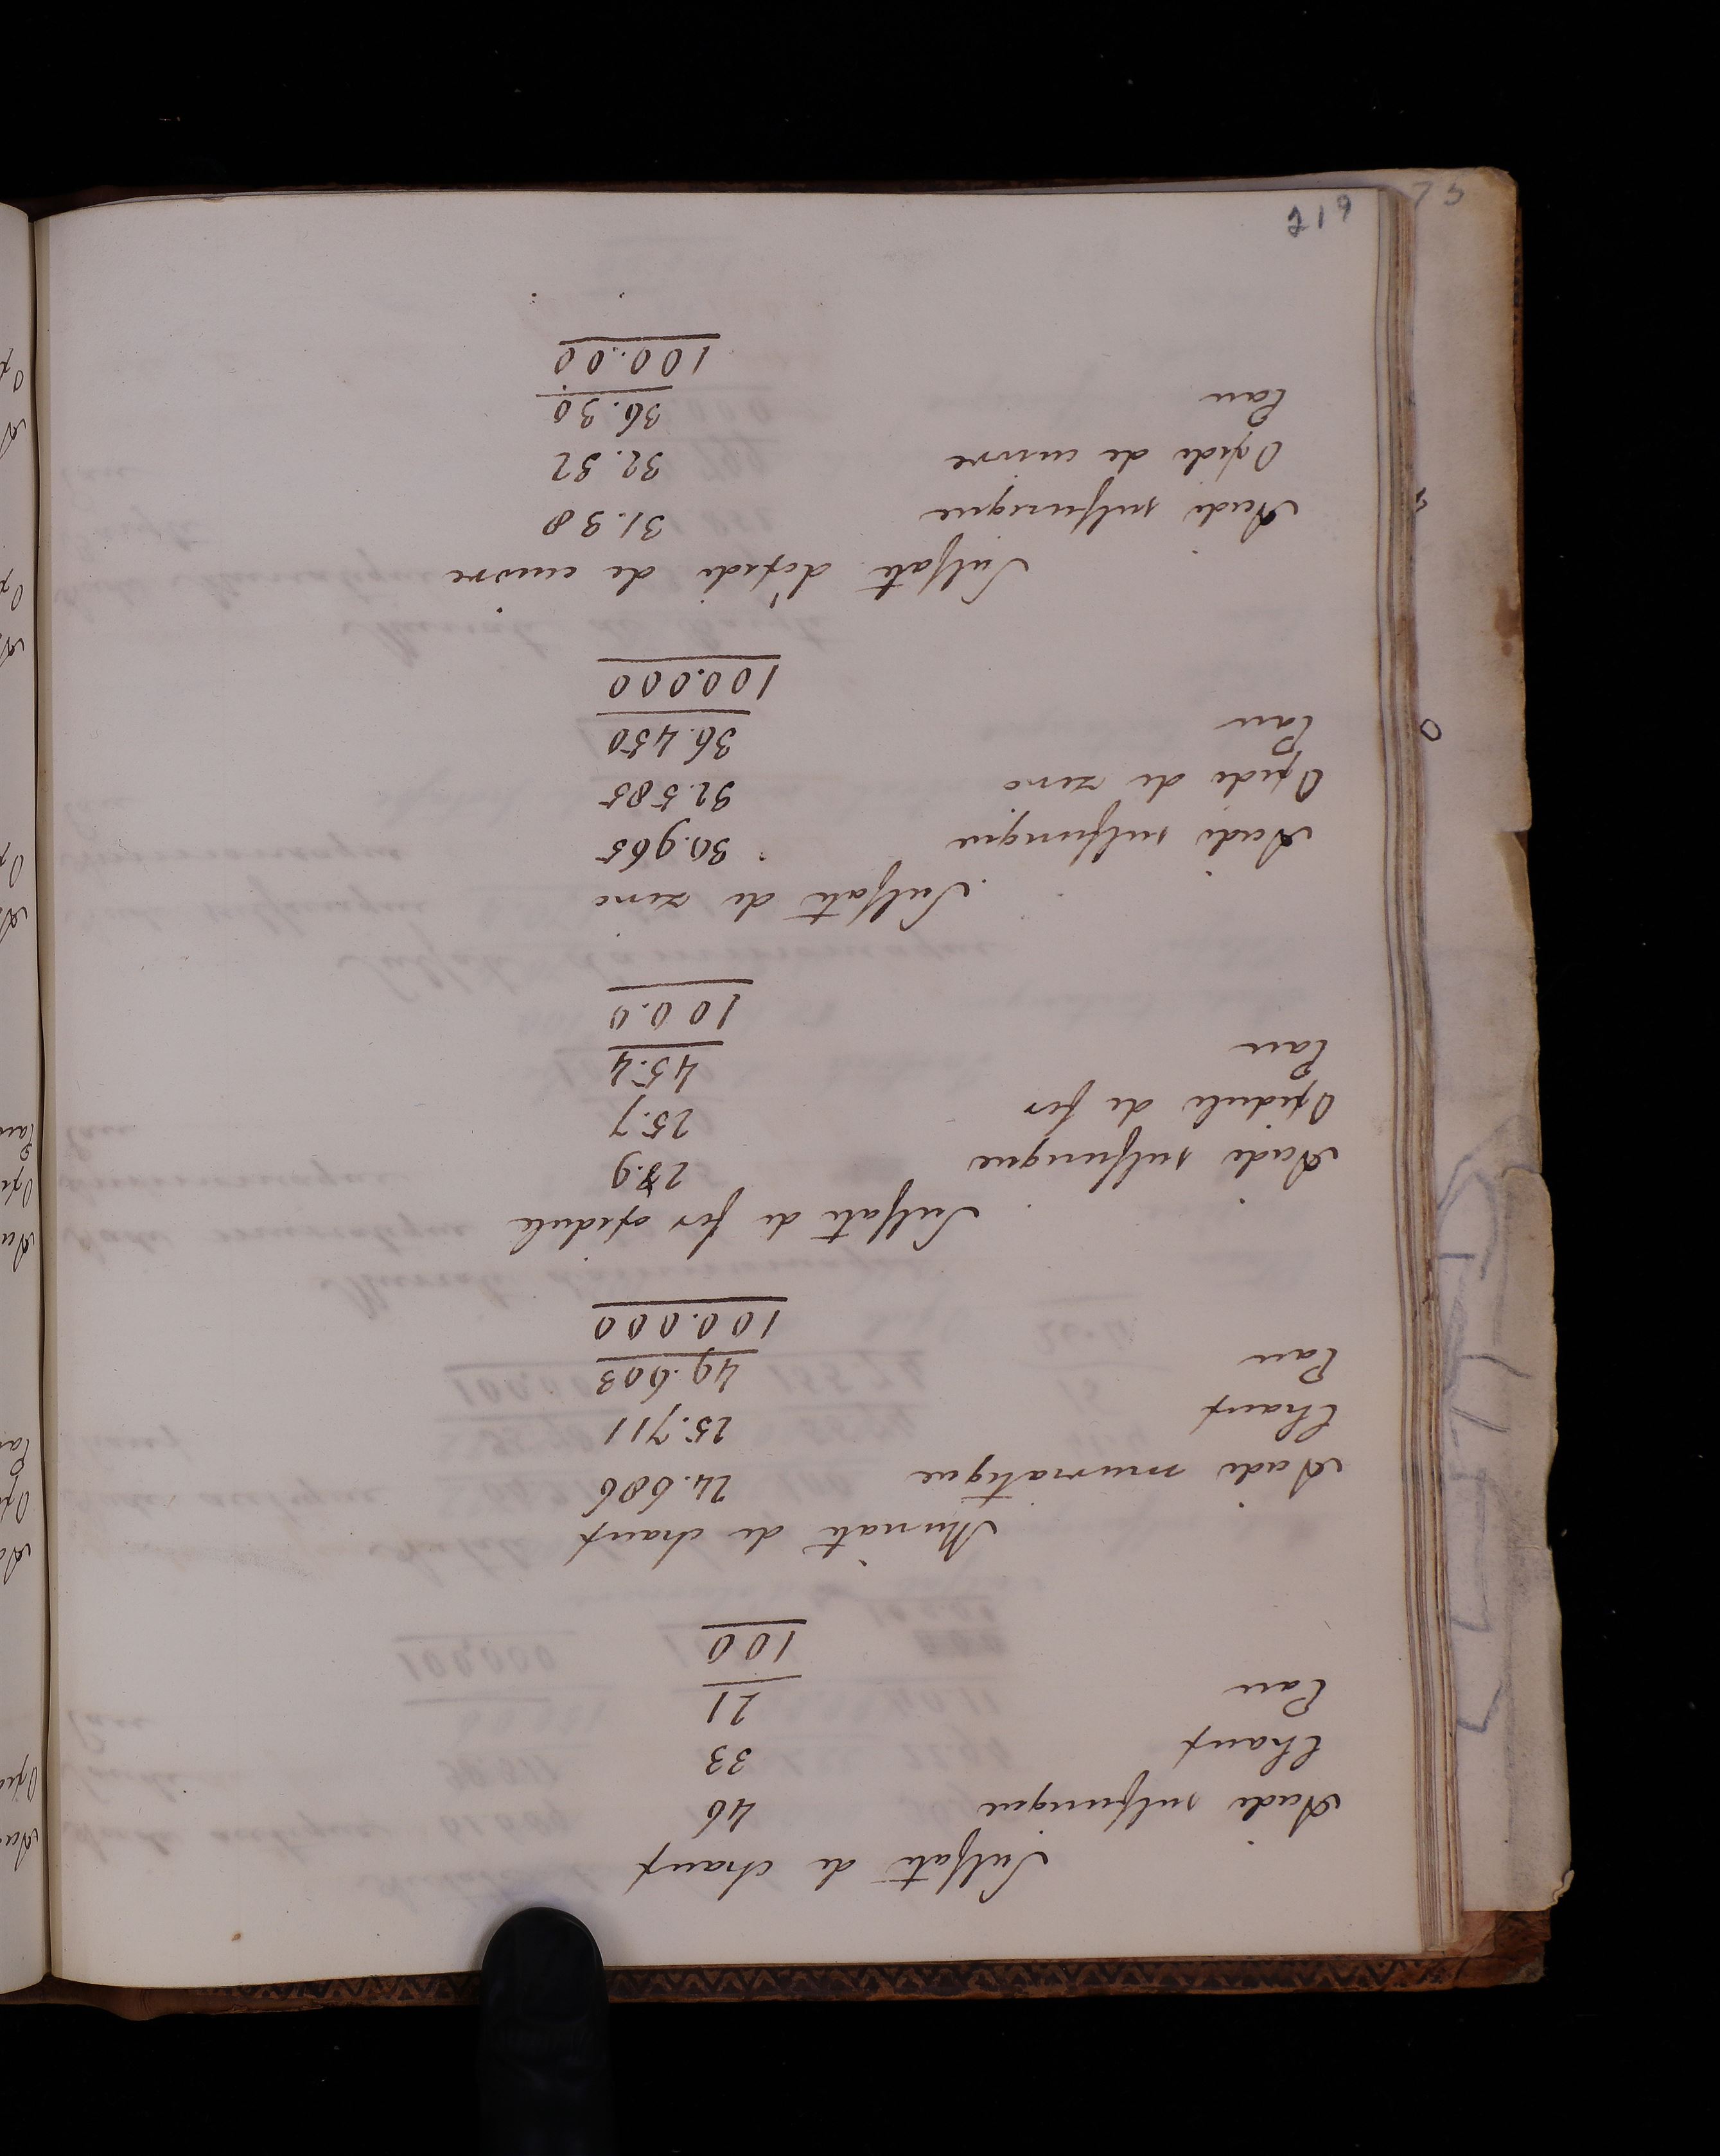 Sulfate de chaux
Acide sulfurique 46
Chaux 33
Eau 21
100
Muriate de chaux
Acide muriatique 24.686
Chaux 25.711
Eau 49.603
100.000
Sulfate de fer oxidulé
Acide sulfurique 28.9
Oxidule de fer 25.7
Eau 45.4
100.0
Sulfate de zinc
Acide sulfurique 30.965
Oxide de zinc 32.585
Eau 36.450
100.000
Sulfate d'oxide de cuivre
Acide sulfurique 31.38
Oxide de cuivre 32.32
Eau 36.30
100.00
219